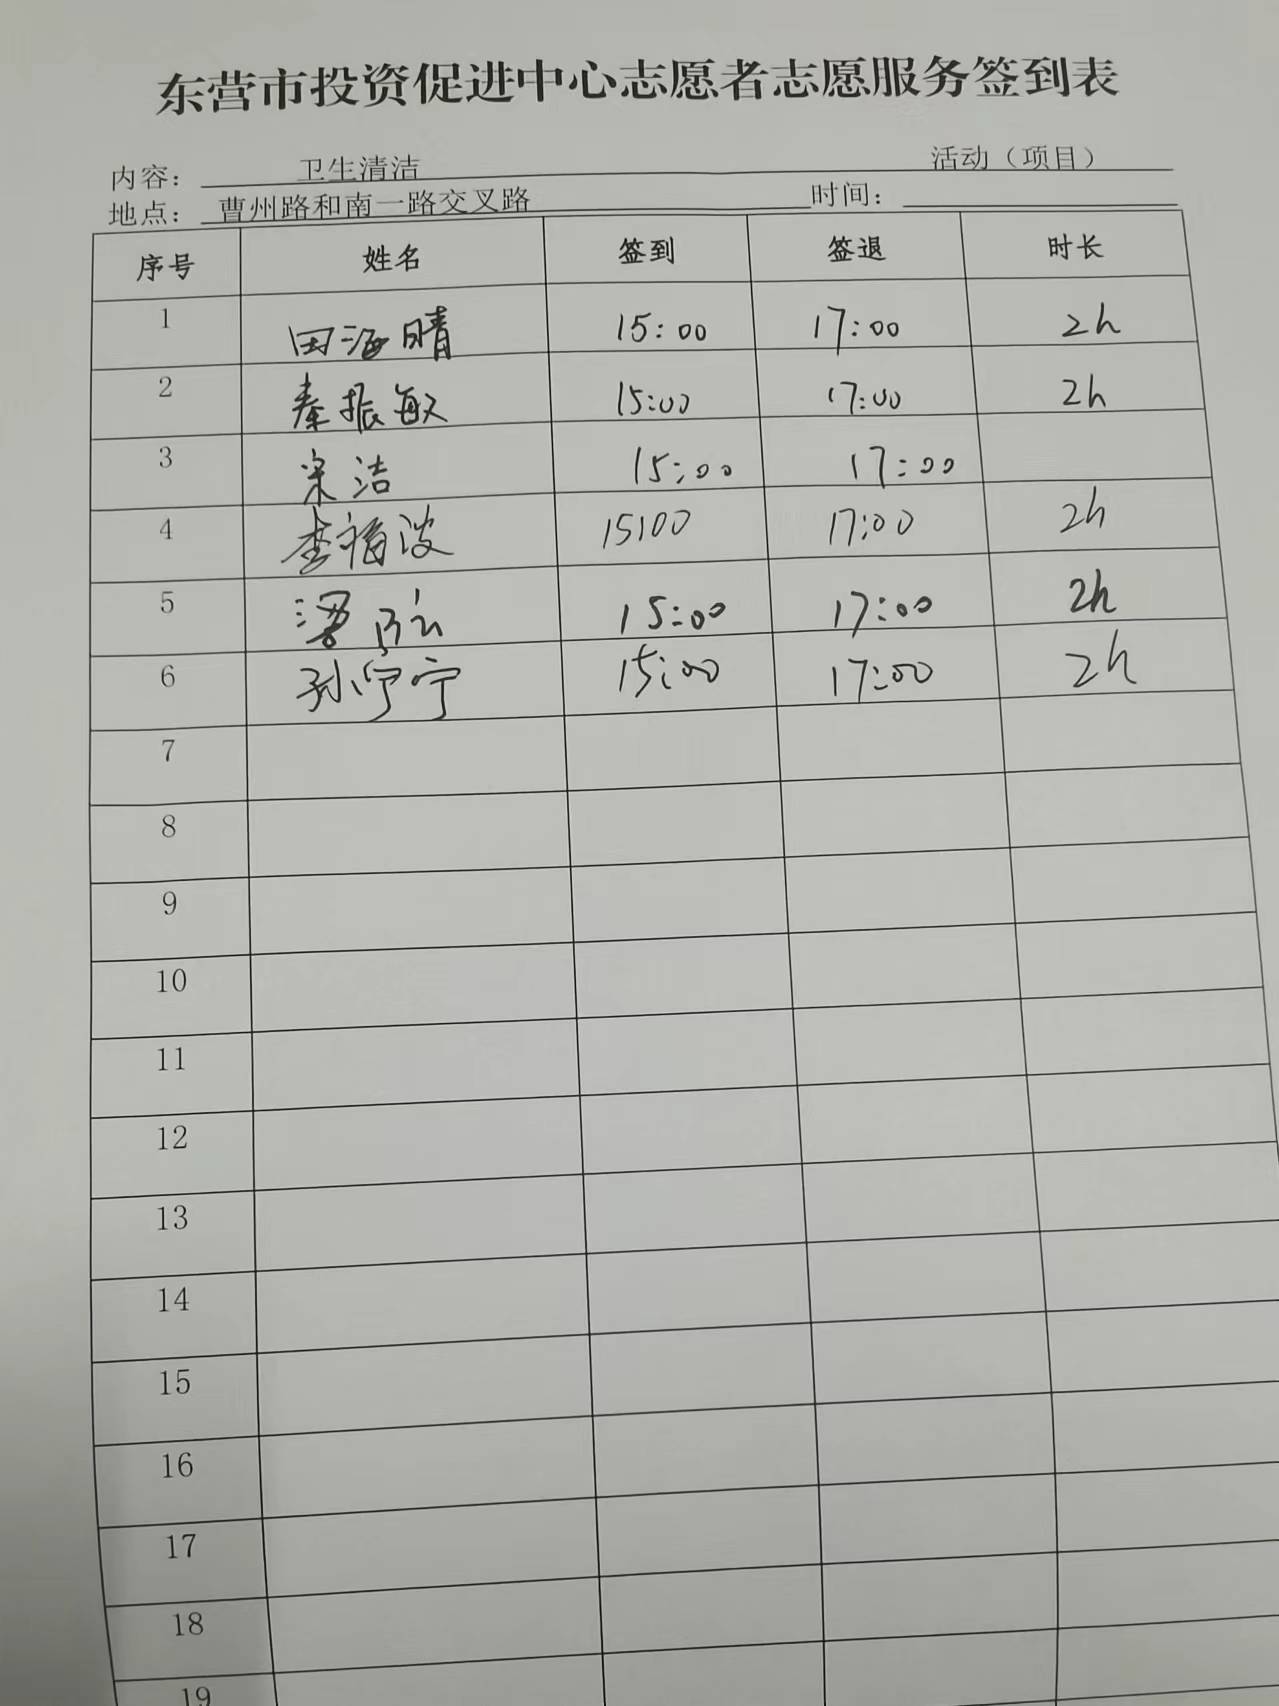 东营市投资促进中心志愿者志愿服务签到表
内容： 卫生清洁 活动（项目）
地点： 曹州路和南一路交叉路 时间：
序号 姓名 签到 签退 时长
1 田海晴 15:00 17:00 2h
2 秦振敏 15:00 17:00 2h
3 宋洁 15:00 17:00
4 李福波 15:00 17:00 2h
5 15:00 17:00 2h
6 孙宁宁 15:00 17:00 2h
7
8
9
10
11
12
13
14
15
16
17
18
19